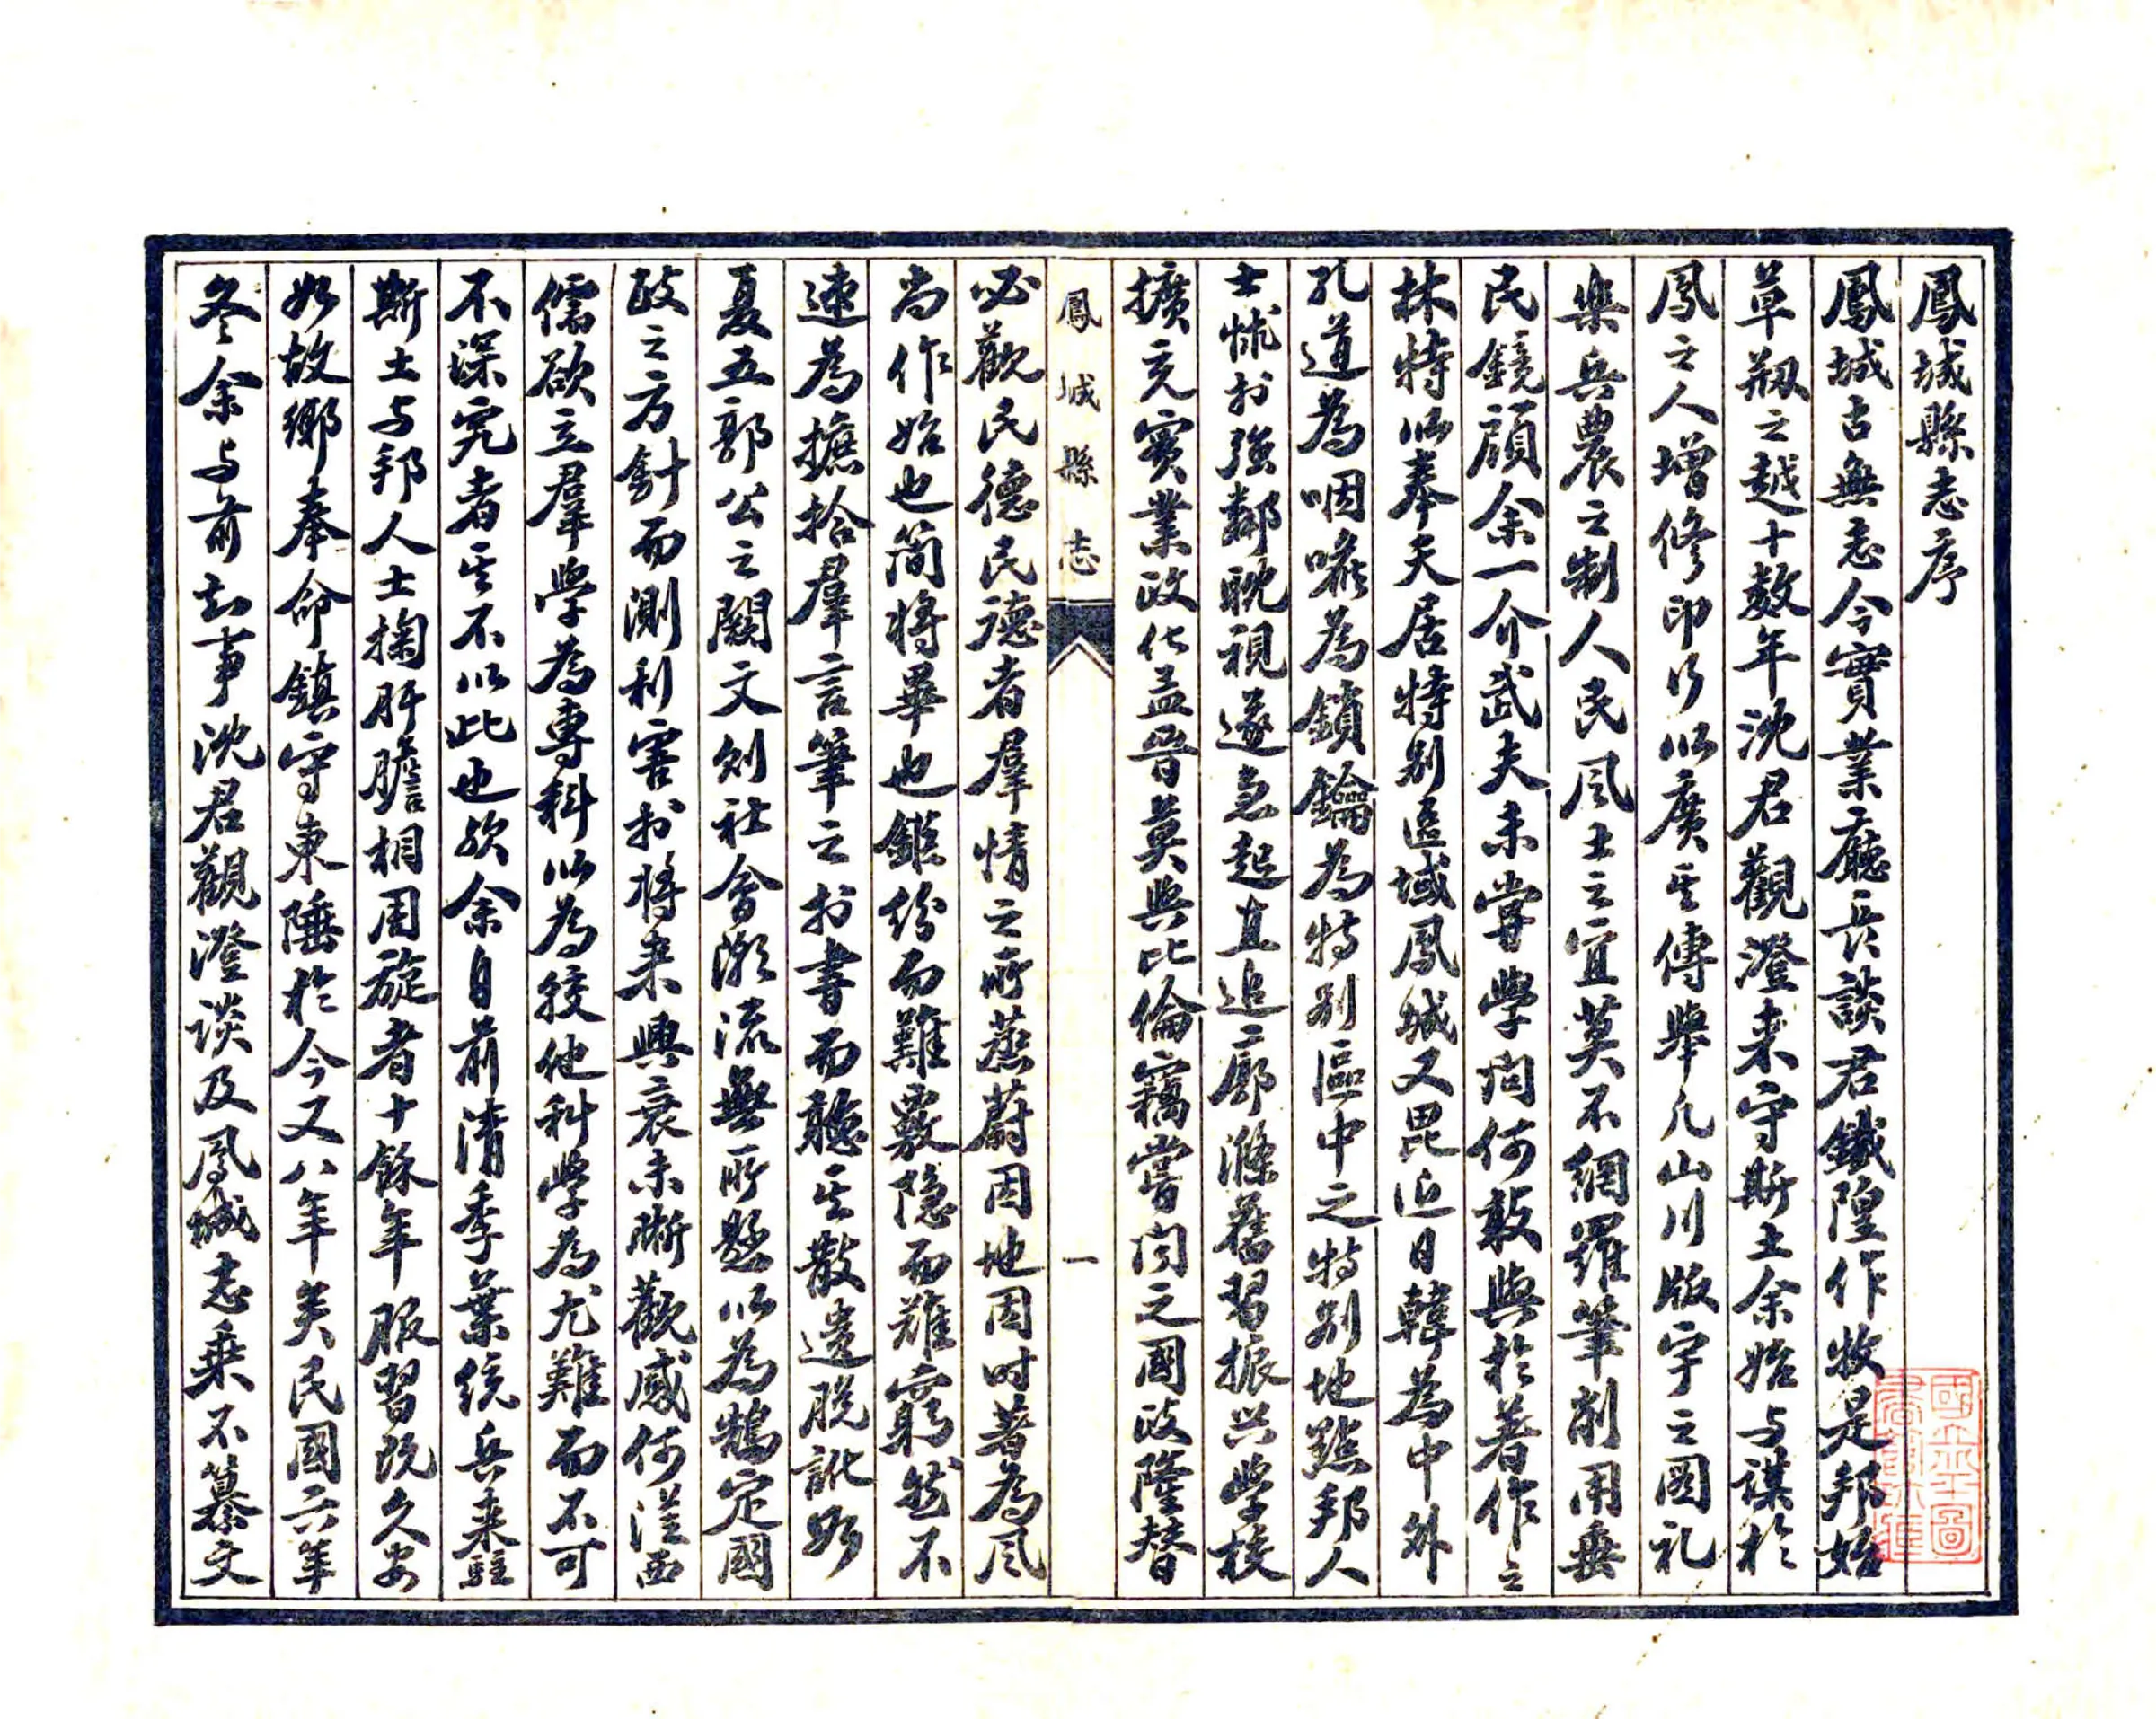 鳳城縣志序
鳳城古無志今實業廳長談君鐵隍作牧是邦始
草剏之越十數年沈君觀澄来守斯土余始与謀於
鳳之人增修印行以廣其傳舉凡山川版宇之圖礼
樂兵農之制人民風土之宜莫不網羅筆削用垂
民鏡顧余一介武夫未嘗學问何敢與於著作之
林特以奉天居特别區域鳳城又毘近日韓為中外
孔道為咽喉為鎖鑰為特别區中之特别地點邦人
士怵於強鄰眈視遂急起直追廓滌舊習振兴學校
擴充實業政化益晉莫與比倫竊嘗闻之國政隆替
鳳城縣志
一
必觀民德民德者羣情之所蒸蔚因地因时著為風
尚作始也简将畢也鉅纷而難覈隐而難窮然不
速為摭拾羣言筆之於書而聽其散遺脱訛如
夏五郭公之闕文则社會潮流無所懸以為鵠定國
政之方針而测利害於将来興衰未晰觀感何從西
儒欲立羣學為專科以為較他科學為尤難而不可
不深究者其不以此也欤余自前清季葉统兵来駐
斯土与邦人士掬肝膽相周旋者十餘年服習既久安
如故鄉奉命鎮守東陲於今又八年矣民國六年
冬余与前知事沈君觀澄谈及鳳城志乗不纂文